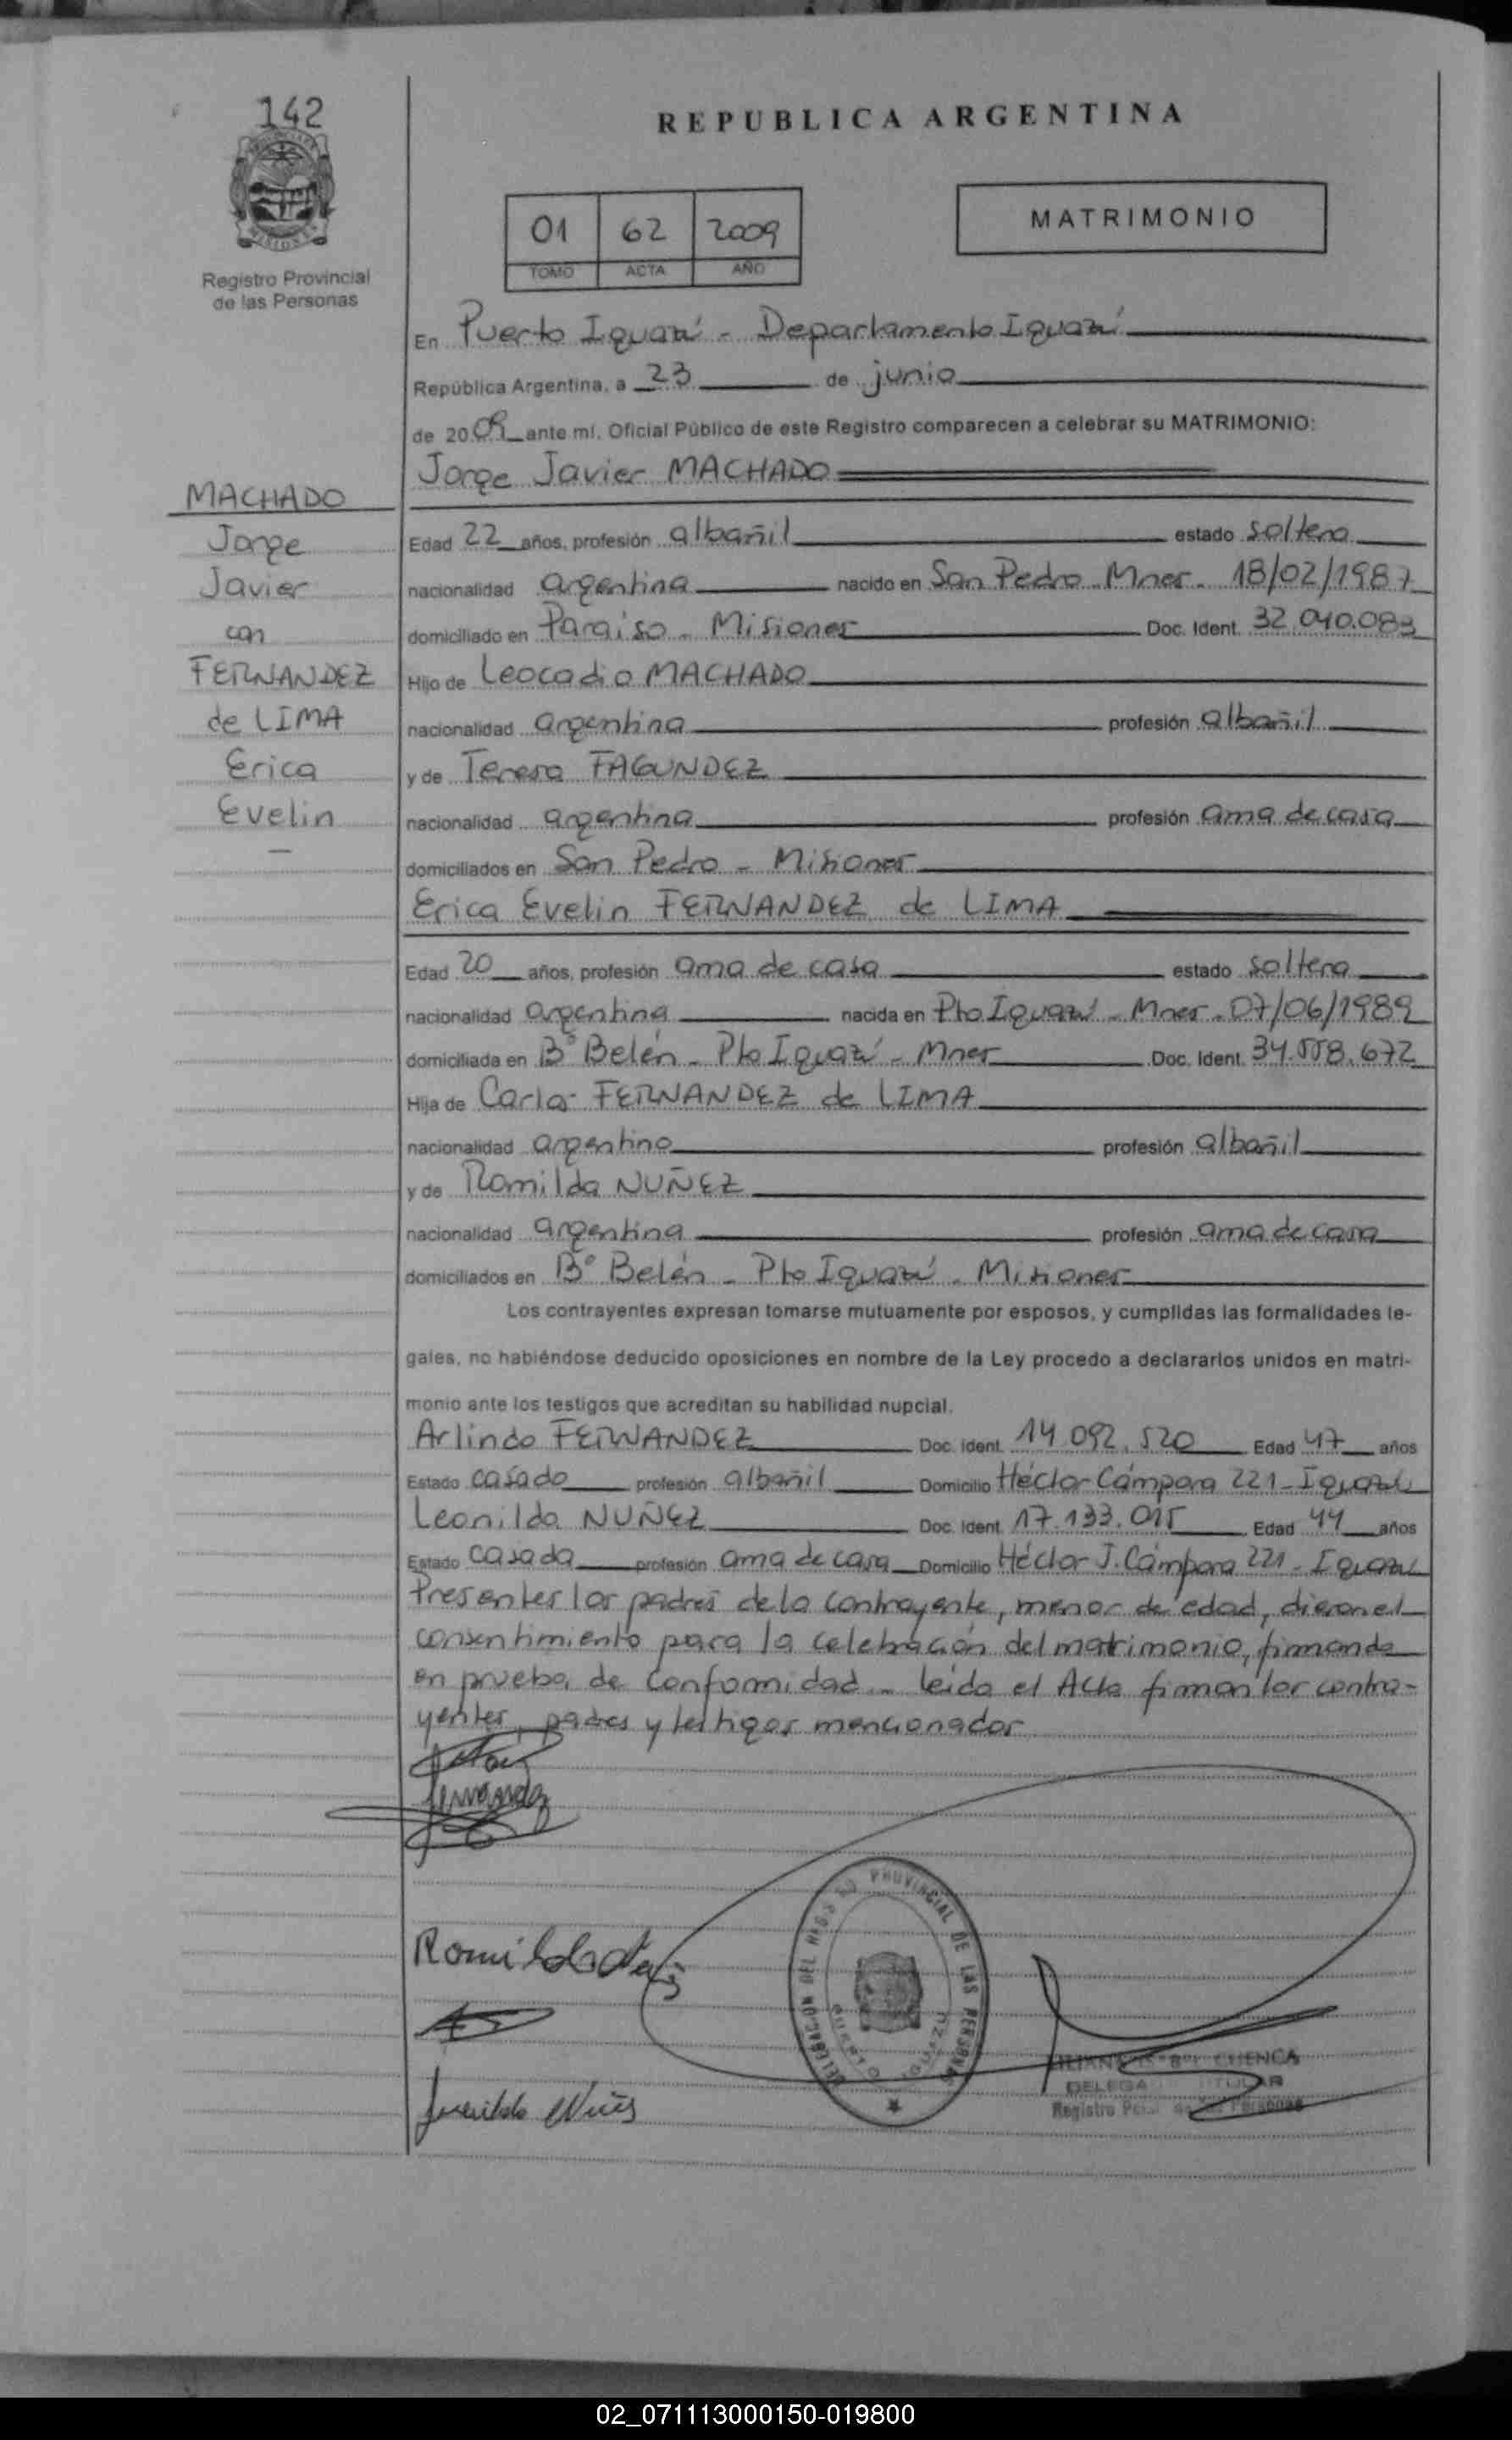 142
REPUBLICA ARGENTINA
01 62 2009
TOMO ACTA AÑO
MATRIMONIO
Registro Provincial
de las Personas
En Puerto Iguazú - Departamento Iguazú
República Argentina, a 23 de junio
de 2009 ante mí, Oficial Público de este Registro comparecen a celebrar su MATRIMONIO:
Jorge Javier MACHADO
MACHADO
Jorge
Javier
con
FERNANDEZ
de LIMA
Erica
Evelin
Edad 22 años, profesión albañil estado soltero
nacionalidad argentina nacido en San Pedro Mnes. 18/02/1987
domiciliado en Paraiso - Misiones Doc. Ident. 32.040.083
Hijo de Leocadio MACHADO
nacionalidad argentina profesión albañil
y de Teresa FAGUNDEZ
nacionalidad argentina profesión ama de casa
domiciliados en San Pedro - Misiones
Erica Evelin FERNANDEZ de LIMA
Edad 20 años, profesión ama de casa estado soltera
nacionalidad argentina nacida en Pto Iguazú - Mnes - 07/06/1989
domiciliada en B° Belén - Pto Iguazú - Mnes Doc. Ident. 34.558.672
Hija de Carlos FERNANDEZ de LIMA
nacionalidad argentino profesión albañil
y de Romilda NUÑEZ
nacionalidad argentina profesión ama de casa
domiciliados en B° Belén - Pto Iguazú - Misiones
Los contrayentes expresan tomarse mutuamente por esposos, y cumplidas las formalidades le-
gales, no habiéndose deducido oposiciones en nombre de la Ley procedo a declararlos unidos en matri-
monio ante los testigos que acreditan su habilidad nupcial.
Arlindo FERNANDEZ Doc. Ident. 14.092.520 Edad 47 años
Estado casado profesión albañil Domicilio Héctor Cámpora 221 - Iguazú
Leonilda NUÑEZ Doc. Ident. 17.133.015 Edad 44 años
Estado casada profesión ama de casa Domicilio Héctor J. Cámpora 221 - Iguazú
Presentes los padres de la contrayente, menor de edad, dieron el
consentimiento para la celebración del matrimonio, firmando
en prueba de conformidad - leída el Acta firman los contra-
yentes, padres y testigos mencionados
Fernandez
Romilda
PROVINCIAL DE LAS PERSONAS
DELEGACION DEL
PUERTO IGUAZU
CUENCA
TITULAR
Registro
02_071113000150-019800